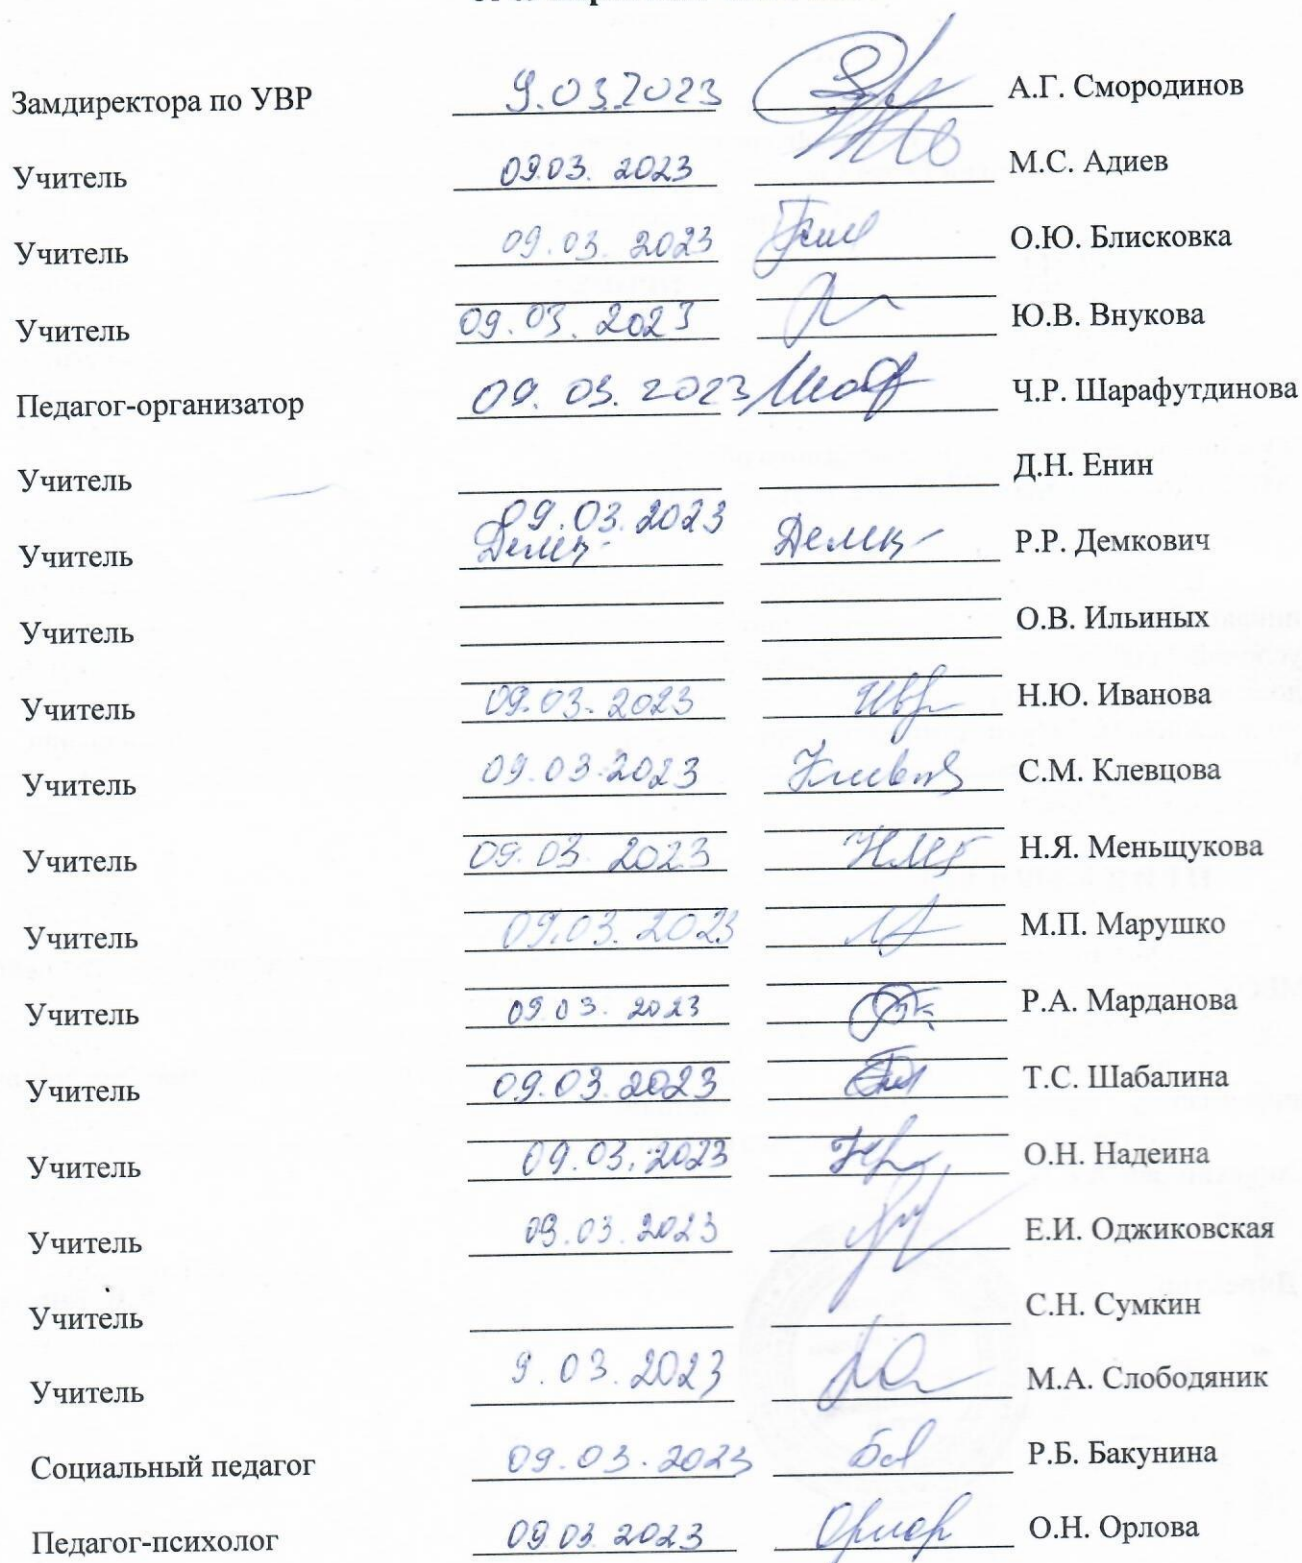 Замдиректора по УВР 9.03.2023 А.Г. Смородинов
Учитель 09.03. 2023 М.С. Адиев
Учитель 09.03. 2023 О.Ю. Блисковка
Учитель 09.03. 2023 Ю.В. Внукова
Педагог-организатор 09. 03. 2023 Ч.Р. Шарафутдинова
Учитель Д.Н. Енин
09.03.2023
Учитель Р.Р. Демкович
Учитель О.В. Ильиных
Учитель 09.03.2023 Н.Ю. Иванова
Учитель 09.03.2023 С.М. Клевцова
Учитель 09.03. 2023 Н.Я. Меньщукова
Учитель 09.03. 2023 М.П. Марушко
Учитель 09.03. 2023 Р.А. Марданова
Учитель 09.03.2023 Т.С. Шабалина
Учитель 09.03.2023 О.Н. Надеина
Учитель 09.03.2023 Е.И. Оджиковская
Учитель С.Н. Сумкин
Учитель 9.03.2023 М.А. Слободяник
Социальный педагог 09.03.2023 Р.Б. Бакунина
Педагог-психолог 09.03.2023 О.Н. Орлова